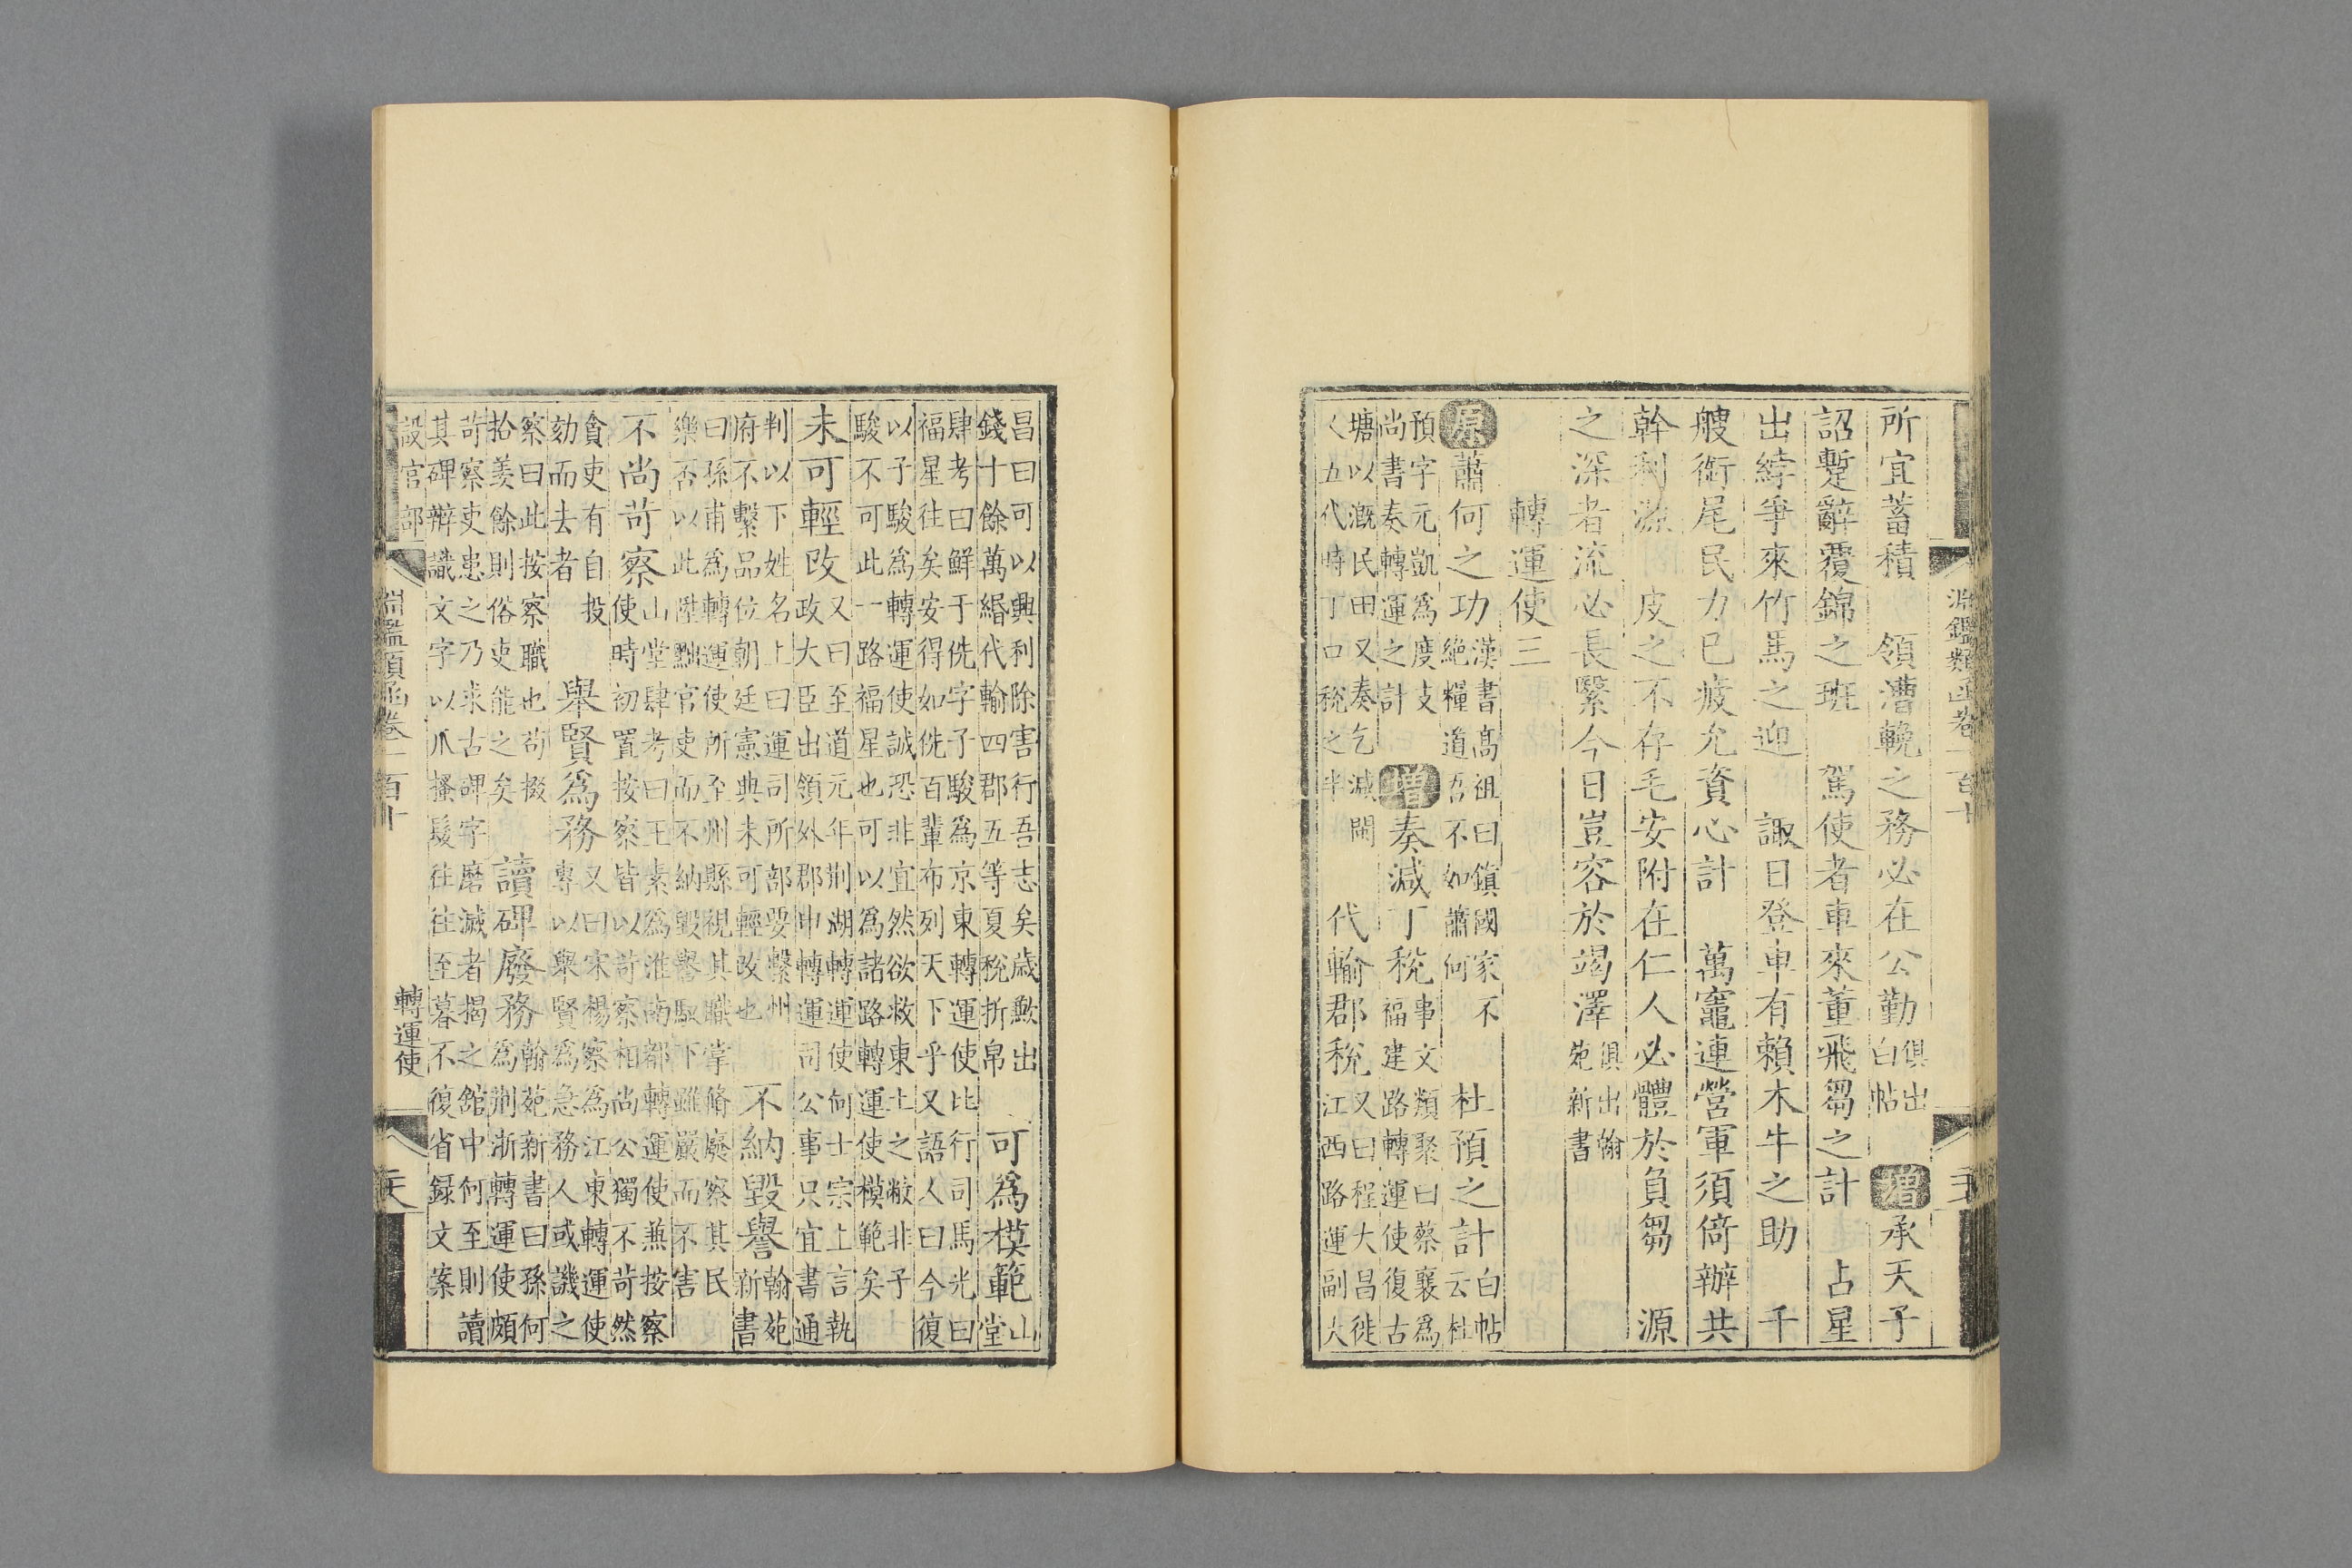 淵鑑類函卷一百十
所宜蓄積　領漕輓之務必在公勤俱出白帖　增承天子
詔蹔辭覆錦之班　駕使者車來董飛芻之計　占星
出綍爭來竹馬之迎　諏日登車有賴木牛之助　千
艘銜尾民力已疲允資心計　萬竈連營軍須倚辦共
幹利源　皮之不存毛安附在仁人必體於負芻　源
之深者流必長緊今日豈容於竭澤俱出翰苑新書
轉運使三
原蕭何之功漢書高祖曰鎮國家不絕糧道吾不如蕭何　杜預之計白帖云杜
預字元凱爲度支尚書奏轉運之計　增奏減丁稅事文類聚曰蔡襄爲福建路轉運使復古
塘以溉民田又奏乞減閩人五代時丁口稅之半　代輸郡稅又曰程大昌徙江西路運副大
昌曰可以興利除害行吾志矣歲歉出錢十餘萬緡代輸四郡五等夏稅折帛　可爲模範山堂
肆考曰鮮于侁字子駿爲京東轉運使比行司馬光曰福星往矣安得如侁百輩布列天下乎又語人曰今復
以子駿爲轉運使誠恐非宜然欲救東土之敝非子駿不可此一路福星也可以爲諸路轉運使模範矣
未可輕改又曰至道元年荊湖轉運使何士宗上言執政大臣出領外郡申轉運司公事只宜書通
判以下姓名上曰運司所部要繫州府不繫品位朝廷憲典未可輕改也　不納毀譽翰苑新書
曰孫甫爲轉運使所至州縣視其職掌脩廢察其民樂否以此陞黜官吏而不納毀譽馭下雖嚴而不害
不尚苛察山堂肆考曰王素爲淮南都轉運使兼按察使時初置按察皆以苛察相尚公獨不苛然
貪吏有自投劾而去者　舉賢爲務又曰宋楊察爲江東轉運使專以舉賢爲急務人或譏之
察曰此按察職也苟掇拾羨餘則俗吏能之矣　讀碑廢務翰苑新書曰孫何爲荊浙轉運使頗
苛察吏患之乃求古碑字磨滅者揭之館中何至則讀其碑辨識文字以爪搔髮往往至暮不復省録文案
設官部
淵鑑類函卷一百十
轉運使